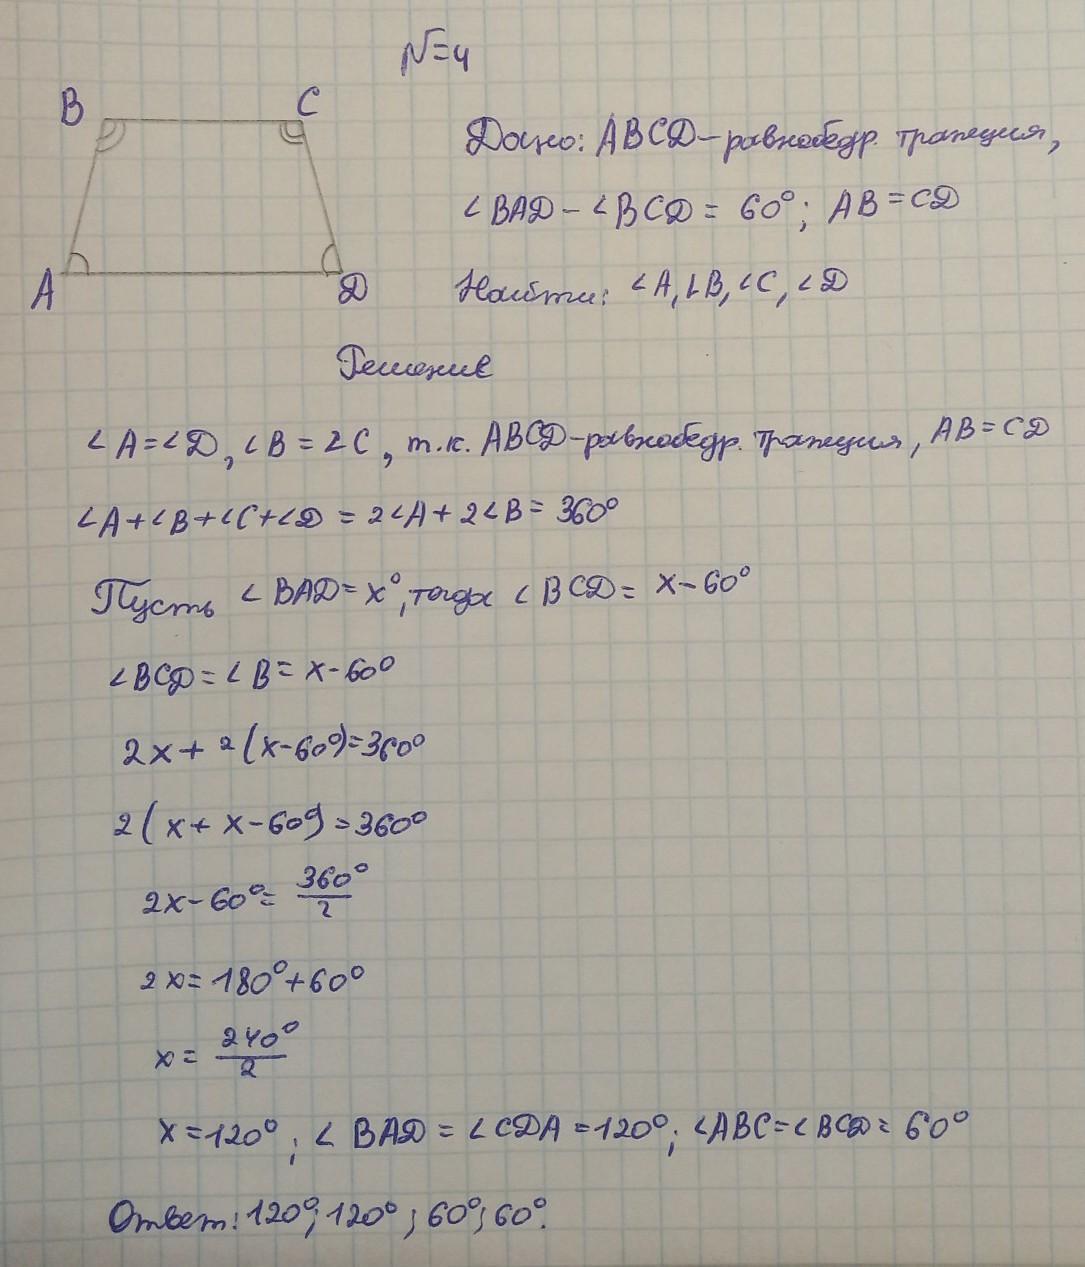 N=4
B C
Дано: ABCD-равнобедр. трапеция,
∠BAD - ∠BCD = 60°; AB = CD
A D
Найти: ∠A, ∠B, ∠C, ∠D
Решение
∠A=∠D, ∠B=∠C, т.к. ABCD-равнобедр. трапеция, AB=CD
∠A+∠B+∠C+∠D = 2∠A+2∠B= 360°
Пусть ∠BAD= x°, тогда ∠BCD= x-60°
∠BCD=∠B= x-60°
2x+ 2(x-60°)=360°
2(x+x-60°)=360°
2x-60°= 360°/2
2x=180°+60°
x= 240°/2
x=120°; ∠BAD=∠CDA=120°; ∠ABC=∠BCD= 60°
Ответ: 120°; 120°; 60°; 60°.